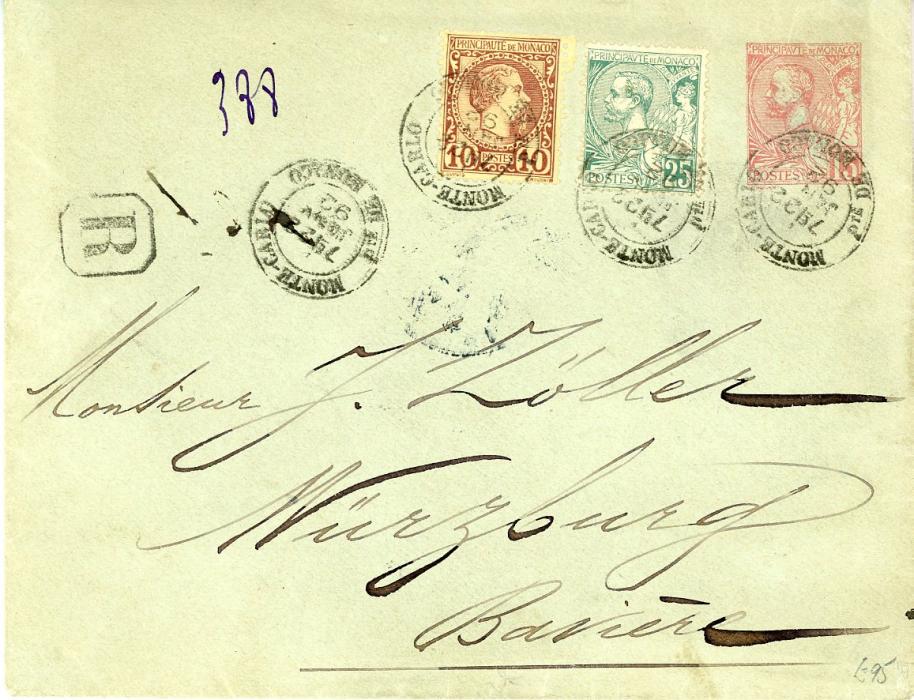 388
PRINCIPAUTÉ DE MONACO
10 POSTES 10
PRINCIPAVTE DE MONACO
POSTES 25
PRINCIPAVTE DE MONACO
POSTES 15
R
MONTE-CARLO
PTÉ DE MONACO
92
MONTE-CARLO
MONTE-CARLO
MONTE-CARLO
PTÉ DE MONACO
Monsieur J. Zöller
Würzburg
Bavière
£95